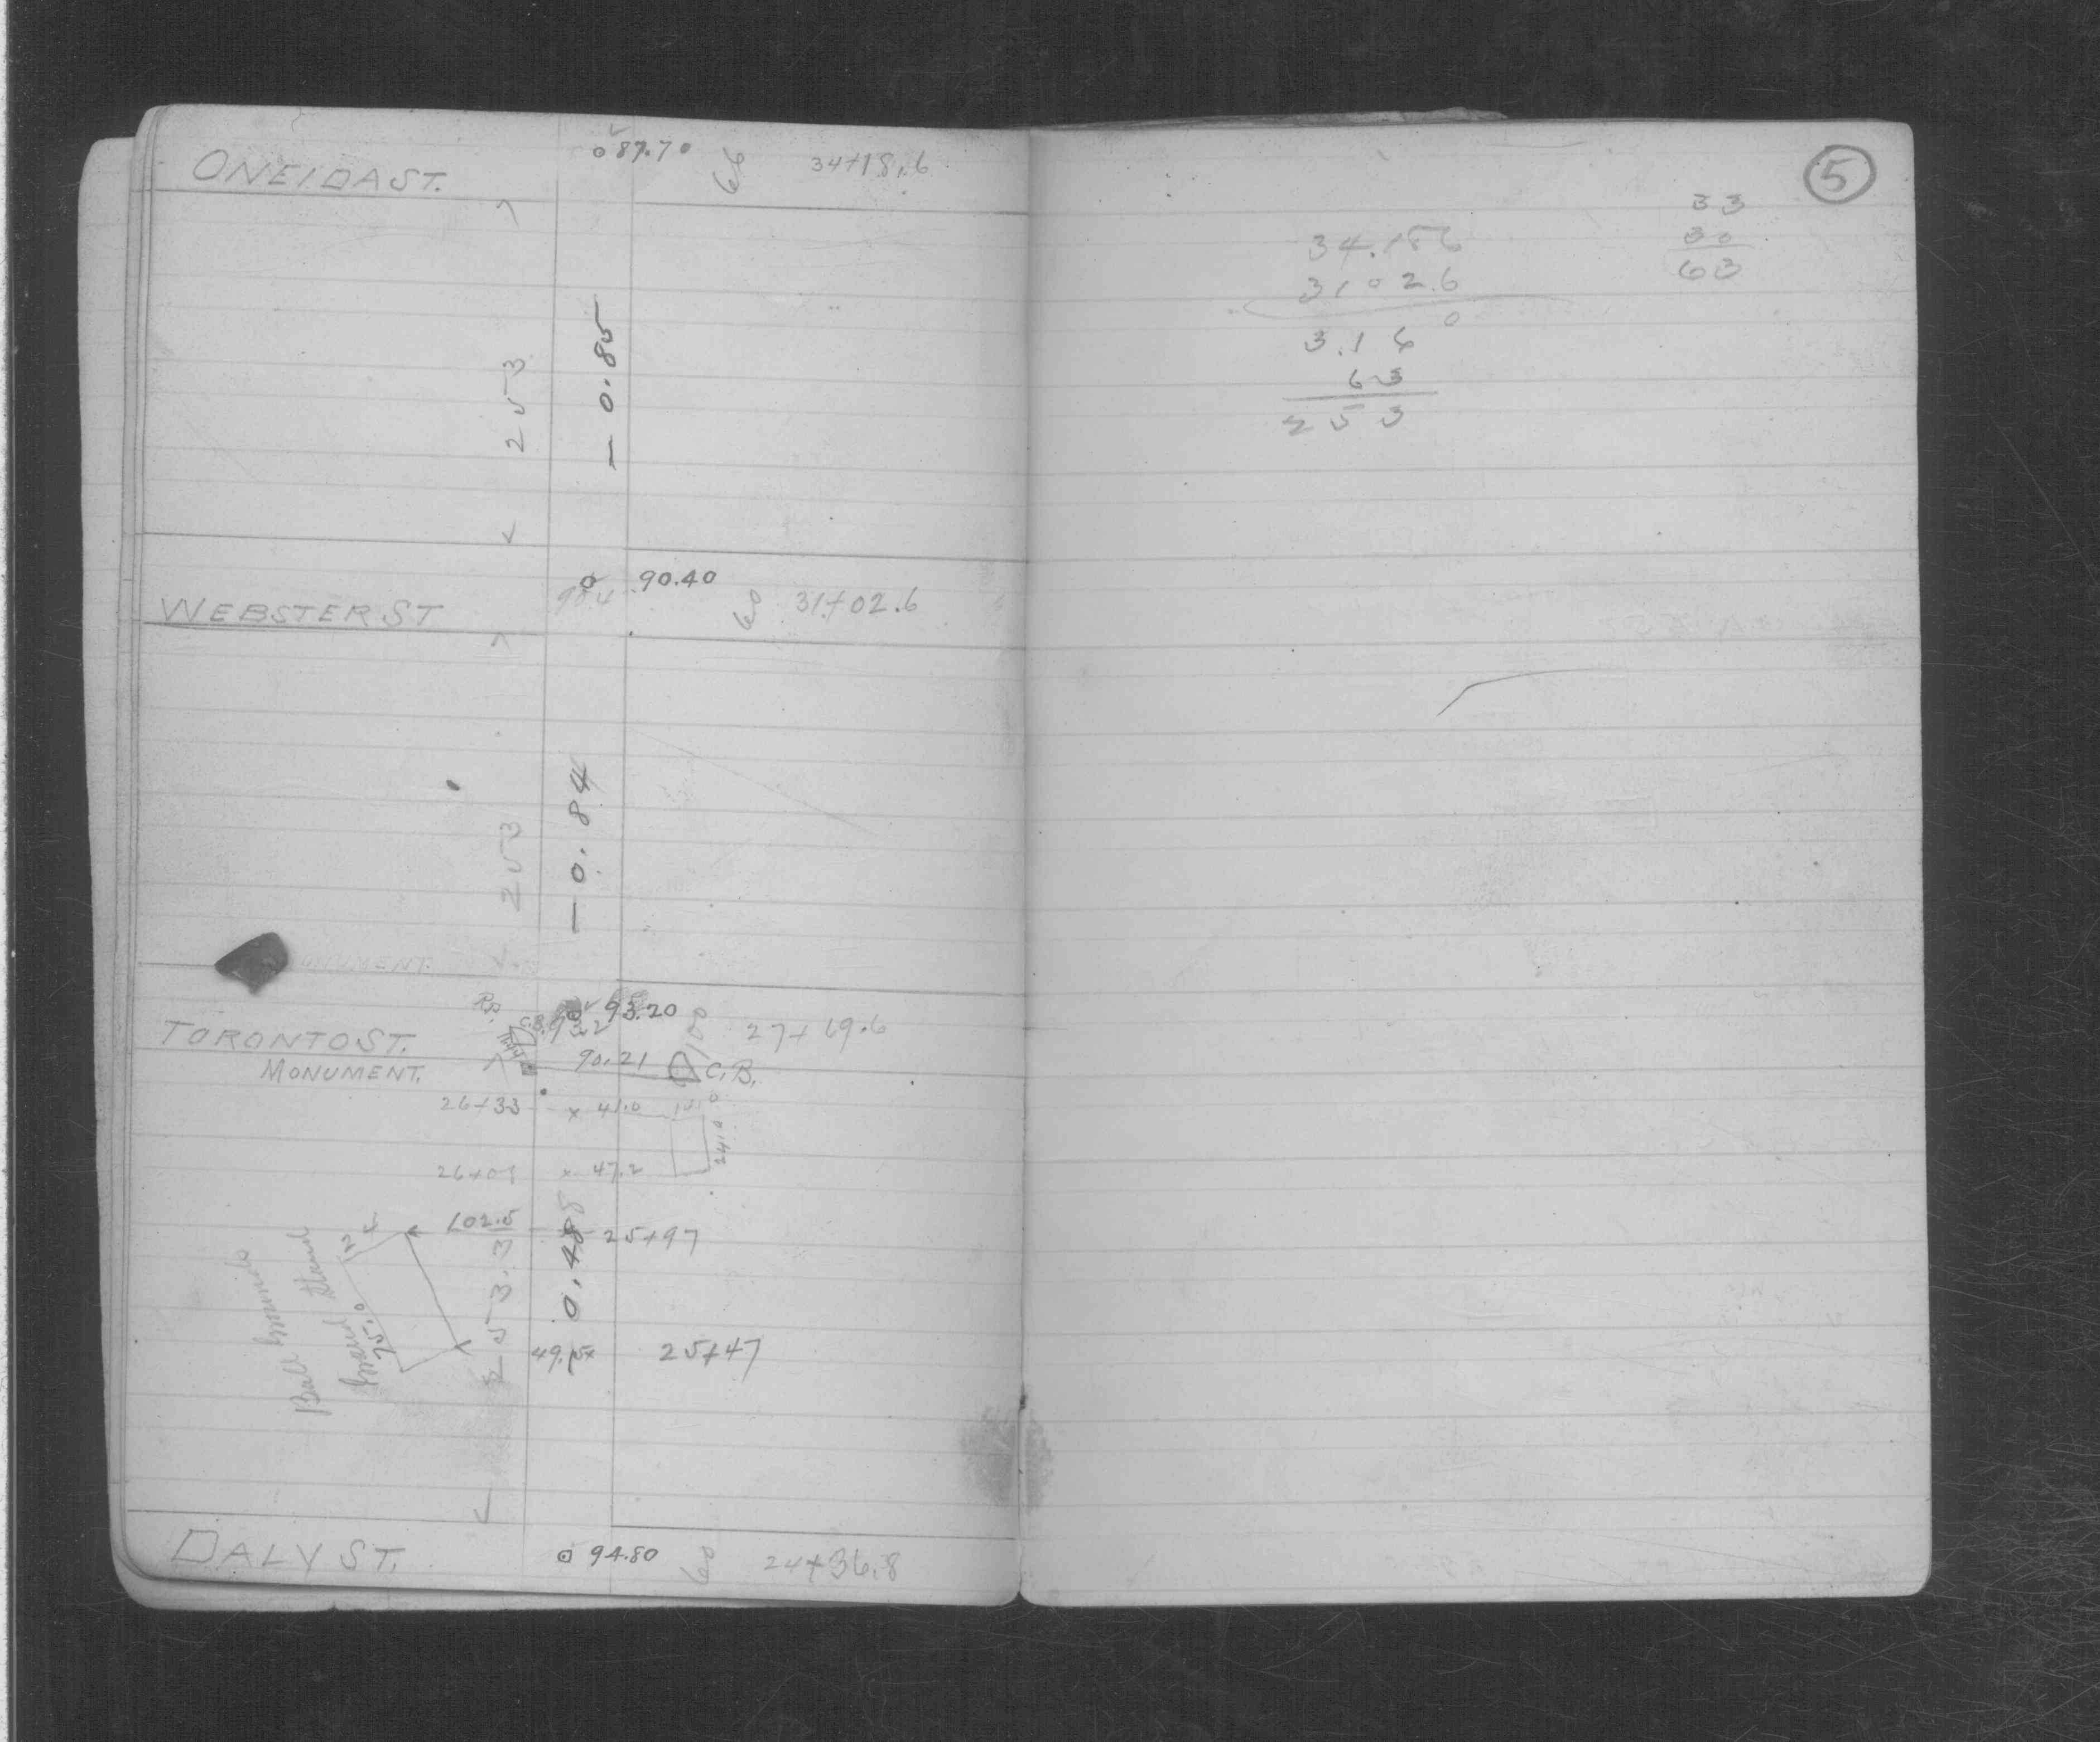 ONEIDA ST.
87.70
66
34+18.6
253
- 0.85
WEBSTER ST
90.40
60
31+02.6
253
- 0.84
MONUMENT.
93.20
TORONTO ST.
100
27+69.6
90.21
C.B.
MONUMENT.
26+33 x 41.0
24.0
x 47.2
102.5
25+97
253.3
- 0.48
Ball Grounds
Grand Stand
75.0
25+47
DALY ST.
94.80
60
24+36.8
5
33
30
63
34.186
3102.6
3.16 0
63
253